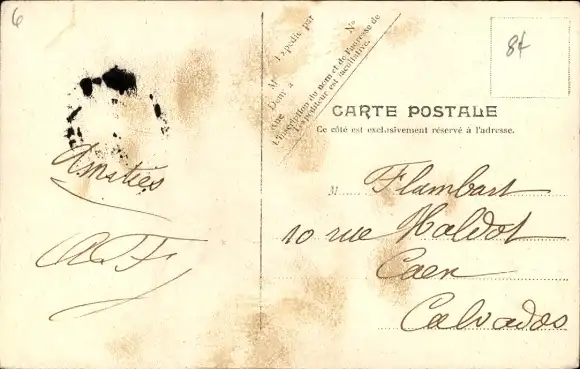 6
Amitiés
A. F.
M Expédié par
Nº
Dem à
rue
L'inscription du nom et de l'adresse de
l'expéditeur est facultative.
84
CARTE POSTALE
Ce côté est exclusivement réservé à l'adresse.
M Flambart
10 rue Haldot
Caen
Calvados